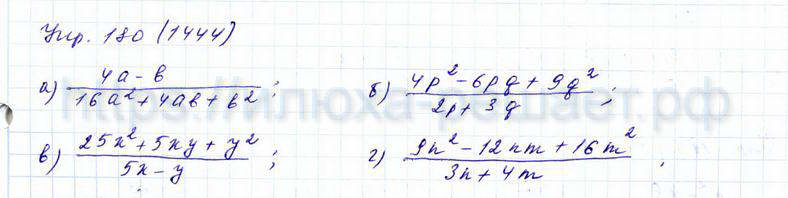 Упр. 180 (1444)
а) (4a - b)/(16a² + 4ab + b²) ; б) (4p² - 6pq + 9q²)/(2p + 3q) ;
в) (25x² + 5xy + y²)/(5x - y) ; г) (9n² - 12nm + 16m²)/(3n + 4m) .
https://илюха-решает.рф